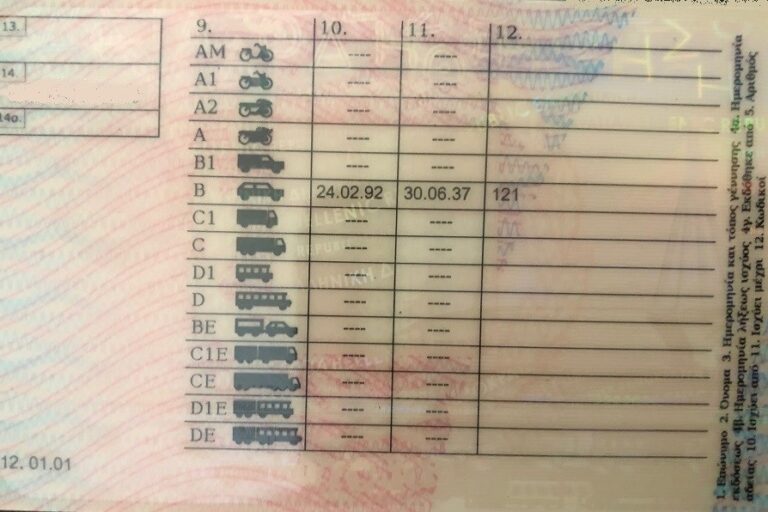 13.
14.
14α.
9. 10. 11. 12.
AM ---- ----
A1 ---- ----
A2 ---- ----
A ---- ----
B1 ---- ----
B 24.02.92 30.06.37 121
C1 ---- ----
C ---- ----
D1 ---- ----
D ---- ----
BE ---- ----
C1E ---- ----
CE ---- ----
D1E ---- ----
DE ---- ----
12. 01.01
1. Επώνυμο 2. Όνομα 3. Ημερομηνία και τόπος γέννησης 4α. Ημερομηνία
εκδόσεως 4β. Ημερομηνία λήξεως ισχύος 4γ. Εκδόθηκε από 5. Αριθμός
αδείας 10. Ισχύει από 11. Ισχύει μέχρι 12. Κωδικοί
HELLENIC
REPUBLIC
ΕΛΛΗΝΙΚΗ Δ